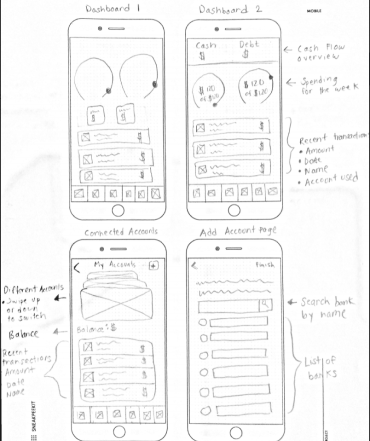 Dashboard 1
Dashboard 2
MOBILE
Cash
Debt
$
$
Cash Flow
overview
$120
$120
Spending
for the week
$
$
$
$
$
$
$
$
Recent transactions
• Amount
• Date
• Name
• Account used
Connected Accounts
Add Account Page
My Accounts
+
Finish
Different Accounts
• Swipe up
or down
to switch
Search bank
by name
Balance
Balance: $
Recent
transactions
Amount
Date
Name
$
$
$
$
List of
banks
SNEAKPEEKIT